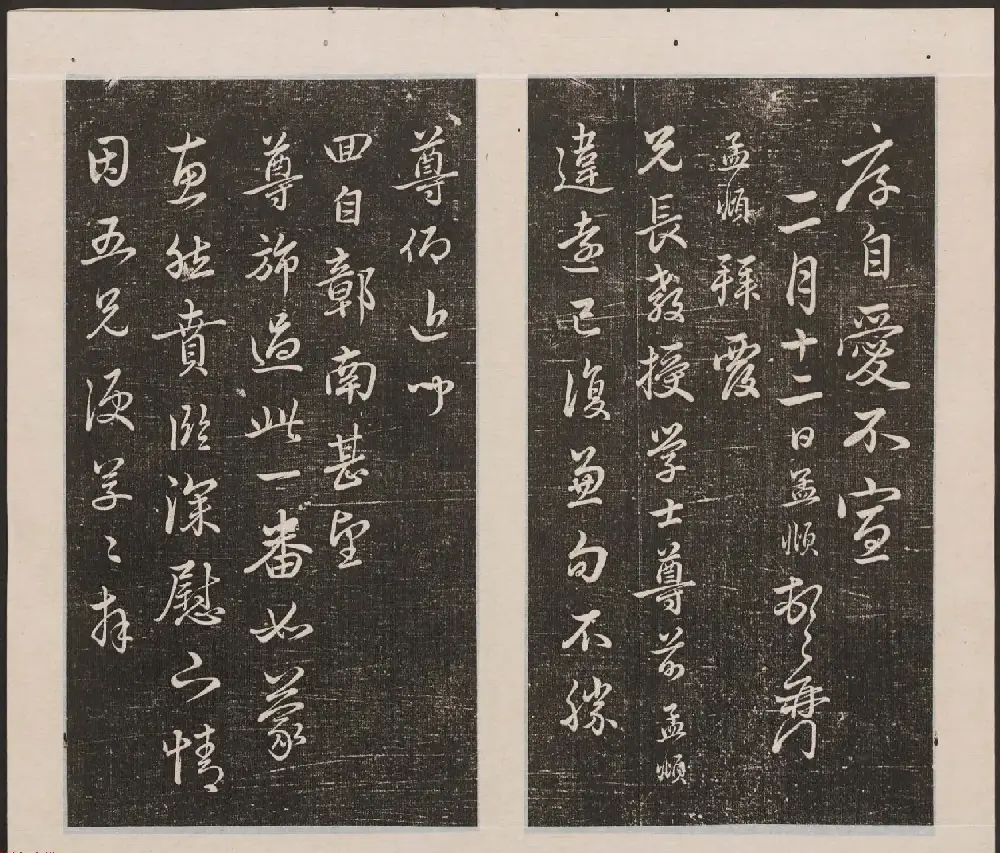 序自愛不宣
二月十二日孟頫
孟頫拜覆
兄長教授学士尊前孟頫
違遠已復兼旬不勝
尊仰近聞
回自鄣南甚望
尊旆過此一番如蒙
惠然賁臨深慰下情
因五兄便草々拜